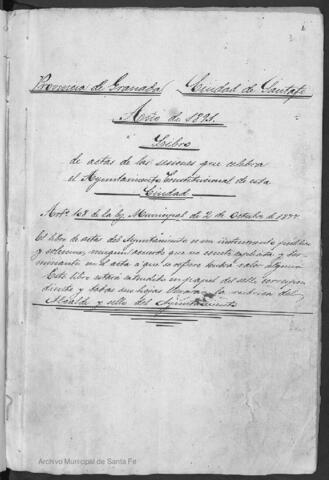 Provincia de Granada Ciudad de Santafe
Año de 1891.
Libro
de actas de las sesiones que celebra
el Ayuntamiento Constitucional de esta
Ciudad
Artº 108 de la ley Municipal de 2 de Octubre de 1877
El libro de actas del Ayuntamiento es un instrumento publico
y solemne, ningun acuerdo que no conste explicita y ter
minante en el acta á que se refiere tendrá valor alguno
Este libro estará extendido en papel del sello correspon
diente y todas sus hojas llevarán la rubrica del
Alcalde y sello del Ayuntamiento
Archivo Municipal de Santa Fe